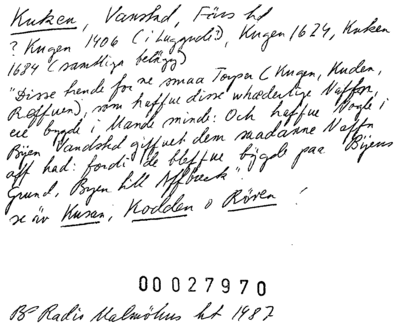 Kuken, Vanstad, Färs hd
? Kugen 1406 (i Luggude?), Kugen 1624, Kuken
1684 (samtliga belägg)
"Disse trende for ne smaa Torper (Kugen, Kuden,
Røffuen), som haffue disse whæderlige Naffn,
ere bygde i Mande minde: Och haffue Bogle i
Byen Vandstad giffuet dem saadanne Naffn
aff had: fordi de bleffue bÿgde paa Byens
Grund, Byen till Affbreck".
se äv Kusan, Kodden o Röven!
00027970
BS Radio Malmöhus ht 1987